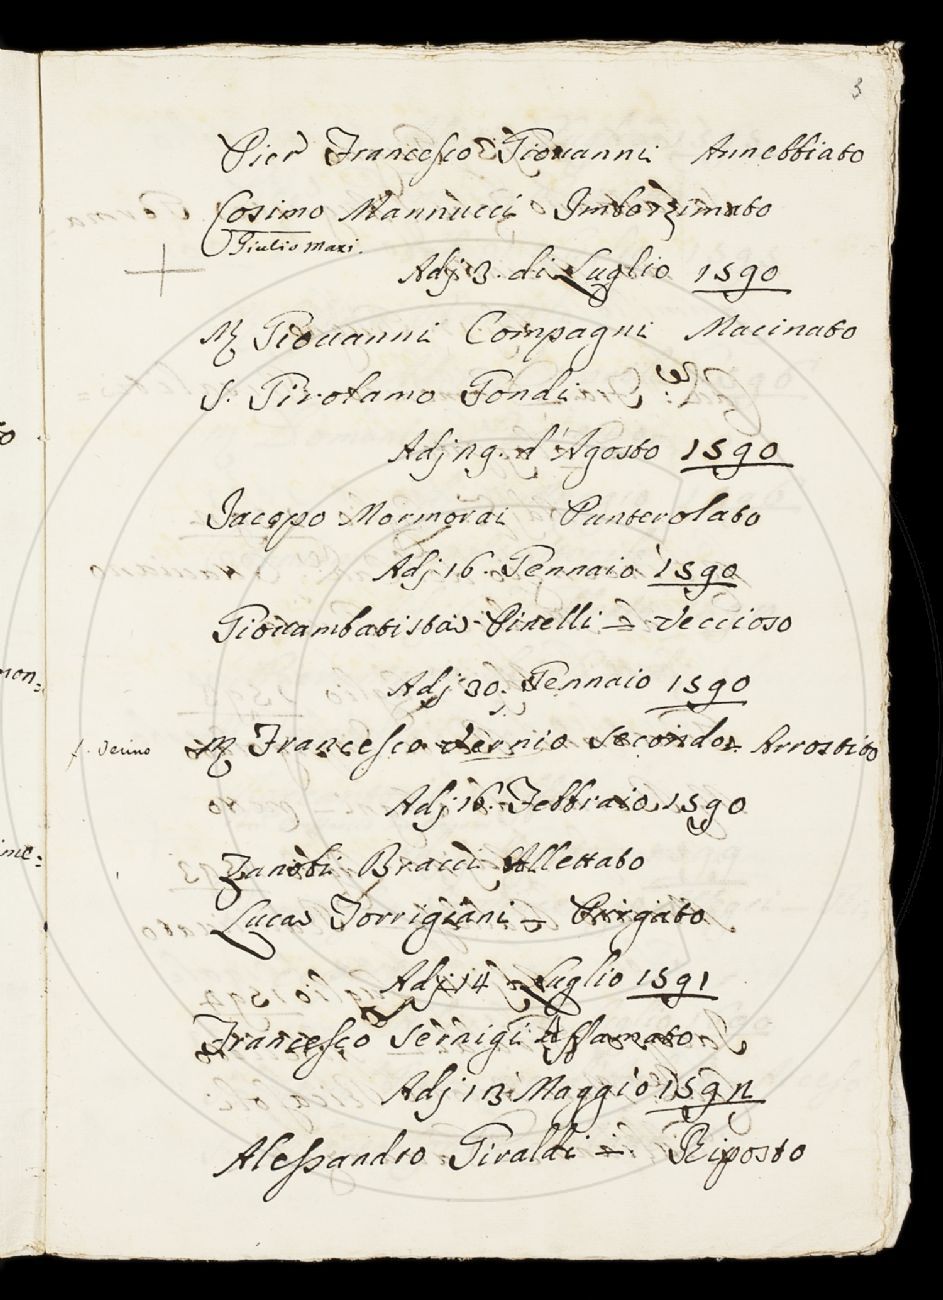 3
Pier Francesco Giovanni Annebbiato
Cosimo Mannucci Imborzimato
Giulio Mazi.
Adj 3. di Luglio 1590
M Giovanni Compagni Macinato
S. Girolamo Fondi
Adj 29. d'Agosto 1590
Jacopo Mormorai Punterolato
Adj 16 Gennaio 1590
Giovambatista Pinelli = Veccioso
Adj 30. Gennaio 1590
f. Verino M Francesco Vernio Secondo = Arrostito
Adj 16. Febbraio 1590
Zanobi Bracci Allettato
Luca Torrigiani = Purgato
Adj 14 Luglio 1591
Francesco Sernigi Affamato
Adj 13 Maggio 1592
Alessandro Giraldi = Riposto